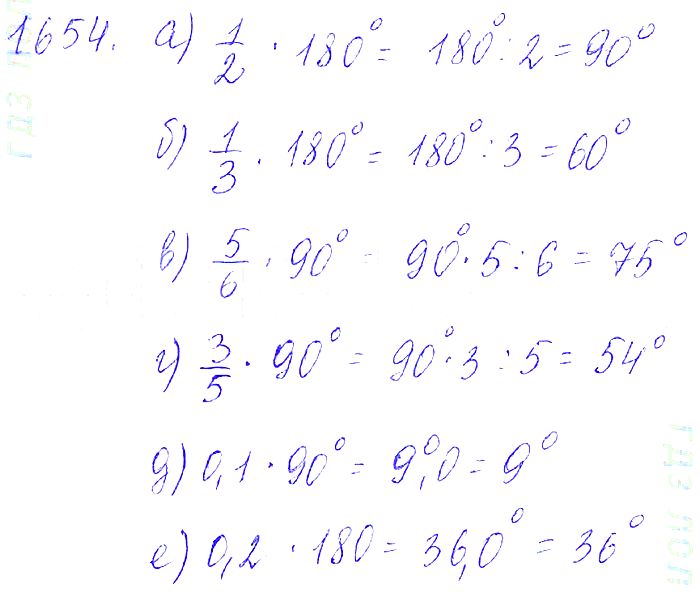 1654. а) 1/2 · 180° = 180° : 2 = 90°
б) 1/3 · 180° = 180° : 3 = 60°
в) 5/6 · 90° = 90° · 5 : 6 = 75°
г) 3/5 · 90° = 90° · 3 : 5 = 54°
д) 0,1 · 90° = 9°,0 = 9°
е) 0,2 · 180 = 36,0° = 36°